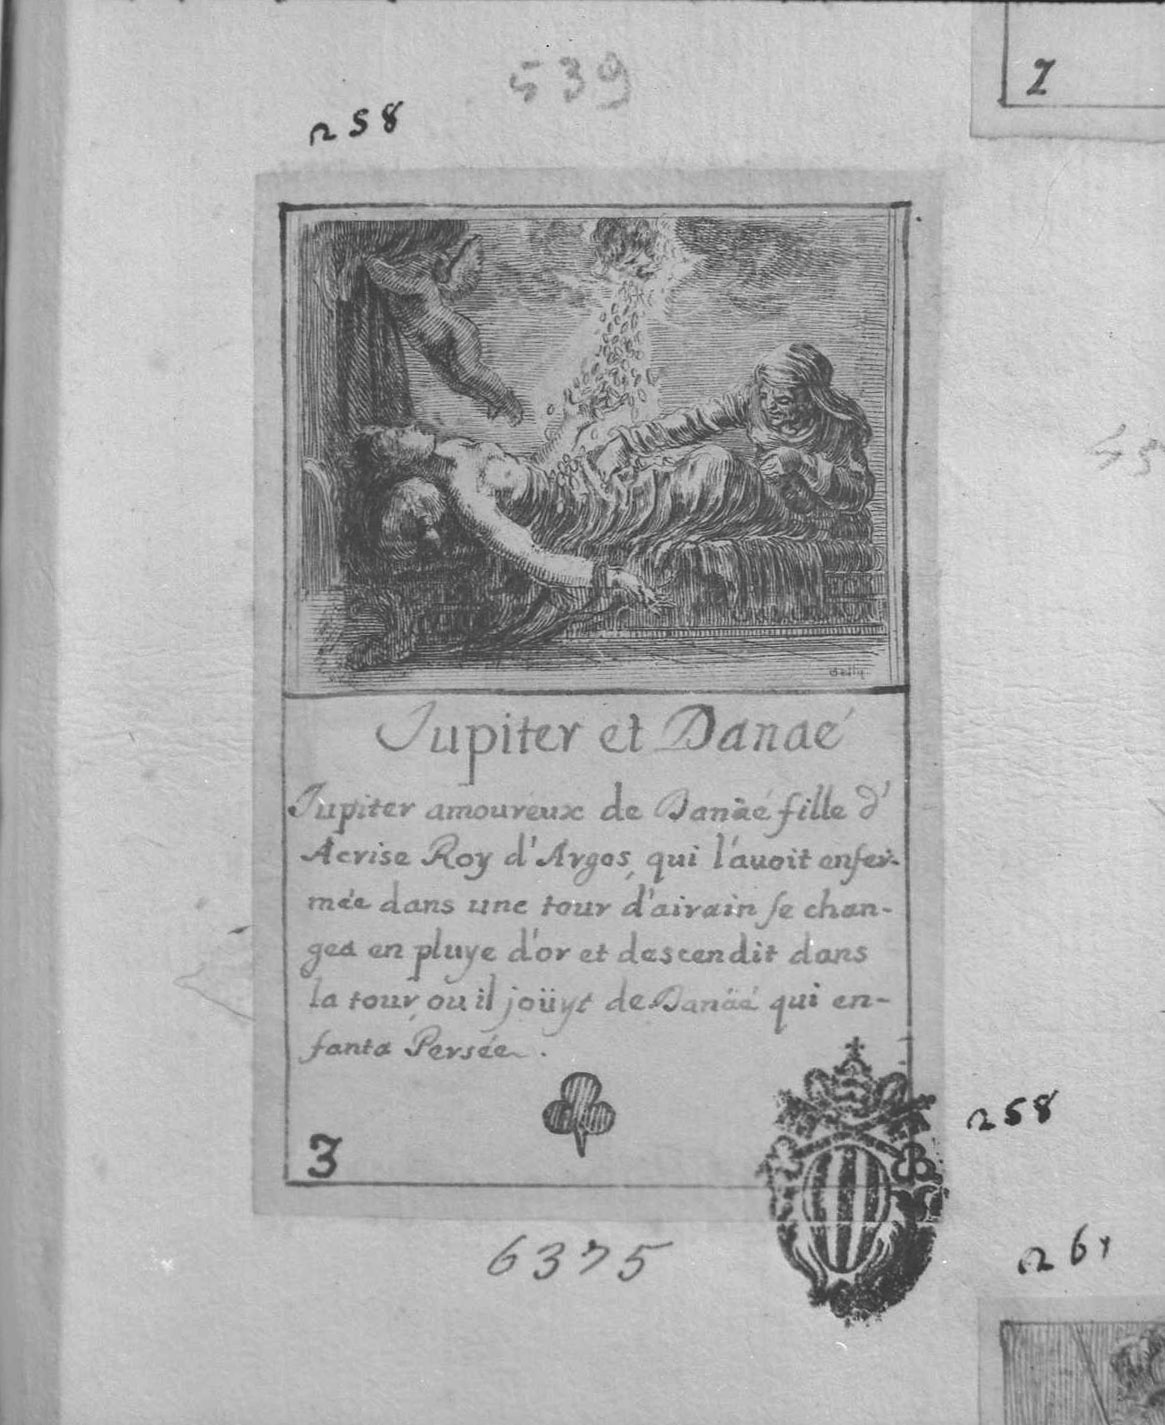 539
n 58
2
Jupiter et Danaé
Jupiter amoureux de Danäé fille d'
Acrise Roy d'Argos, qui l'auoit enfer-
mée dans une tour d'airain se chan-
gea en pluye d'or et descendit dans
la tour, ou il joüyt de Danäé qui en-
fanta Persée.
3
n 58
6375
n 61